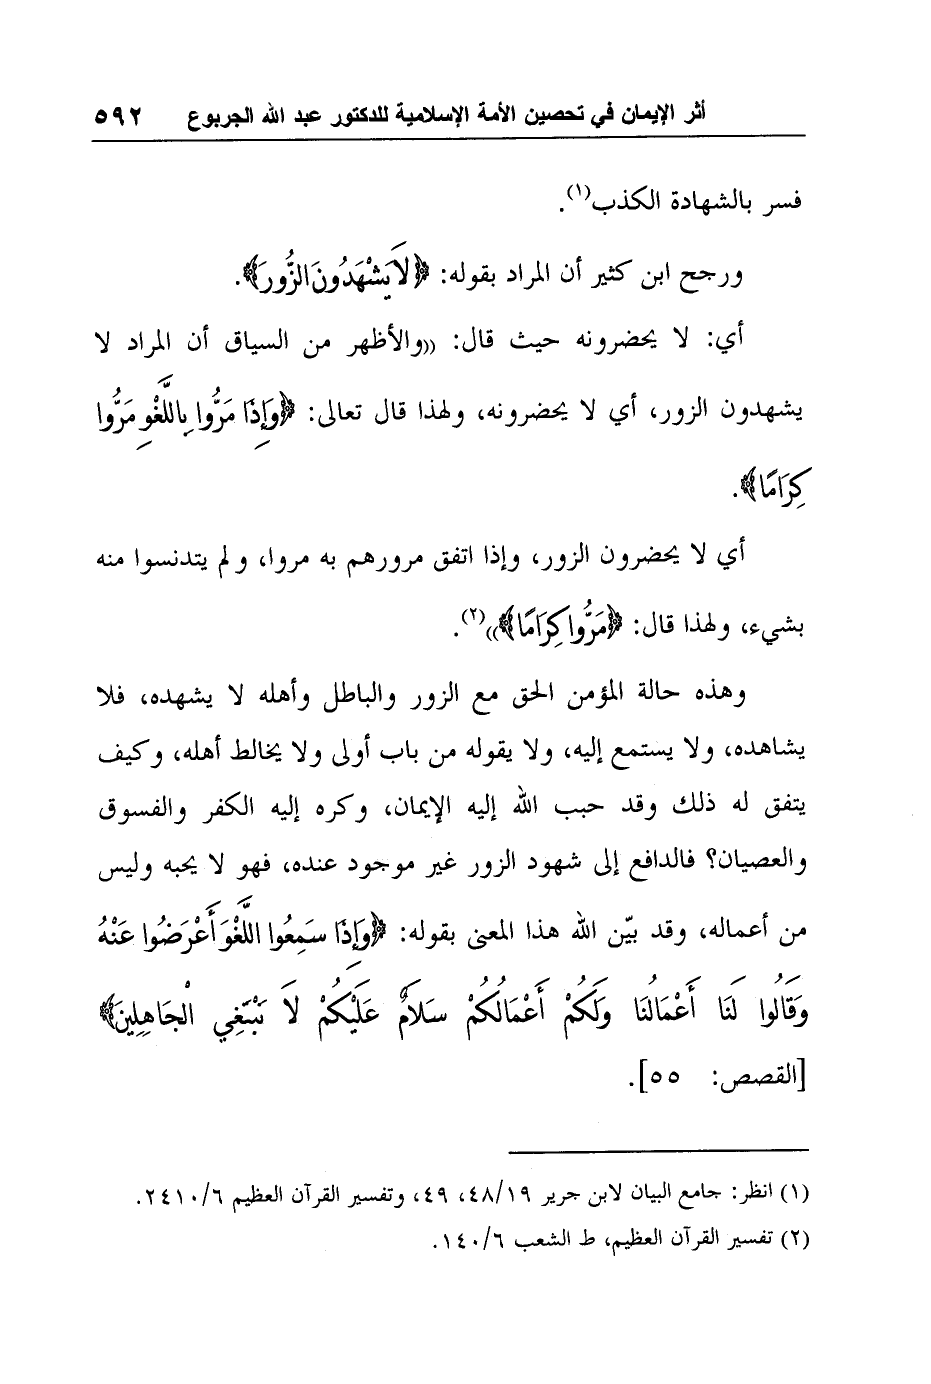 أثر الإيمان في تحصين الأمة الإسلامية للدكتور عبد الله الجربوع ٥٩٢
فسر بالشهادة الكذب(١).
ورجح ابن كثير أن المراد بقوله: ﴿لَا يَشْهَدُونَ الزُّورَ﴾.
أي: لا يحضرونه حيث قال: ((والأظهر من السياق أن المراد لا
يشهدون الزور، أي لا يحضرونه، ولهذا قال تعالى: ﴿وَإِذَا مَرُّوا بِاللَّغْوِ مَرُّوا
كِرَامًا﴾.
أي لا يحضرون الزور، وإذا اتفق مرورهم به مروا، ولم يتدنسوا منه
بشيء، ولهذا قال: ﴿مَرُّوا كِرَامًا﴾))(٢).
وهذه حالة المؤمن الحق مع الزور والباطل وأهله لا يشهده، فلا
يشاهده، ولا يستمع إليه، ولا يقوله من باب أولى ولا يخالط أهله، وكيف
يتفق له ذلك وقد حبب الله إليه الإيمان، وكره إليه الكفر والفسوق
والعصيان؟ فالدافع إلى شهود الزور غير موجود عنده، فهو لا يحبه وليس
من أعماله، وقد بيّن الله هذا المعنى بقوله: ﴿وَإِذَا سَمِعُوا اللَّغْوَ أَعْرَضُوا عَنْهُ
وَقَالُوا لَنَا أَعْمَالُنَا وَلَكُمْ أَعْمَالُكُمْ سَلَامٌ عَلَيْكُمْ لَا نَبْتَغِي الْجَاهِلِينَ﴾
[القصص: ٥٥].
(١) انظر: جامع البيان لابن جرير ٤٨/١٩، ٤٩، وتفسير القرآن العظيم ٢٤١٠/٦.
(٢) تفسير القرآن العظيم، ط الشعب ١٤٠/٦.